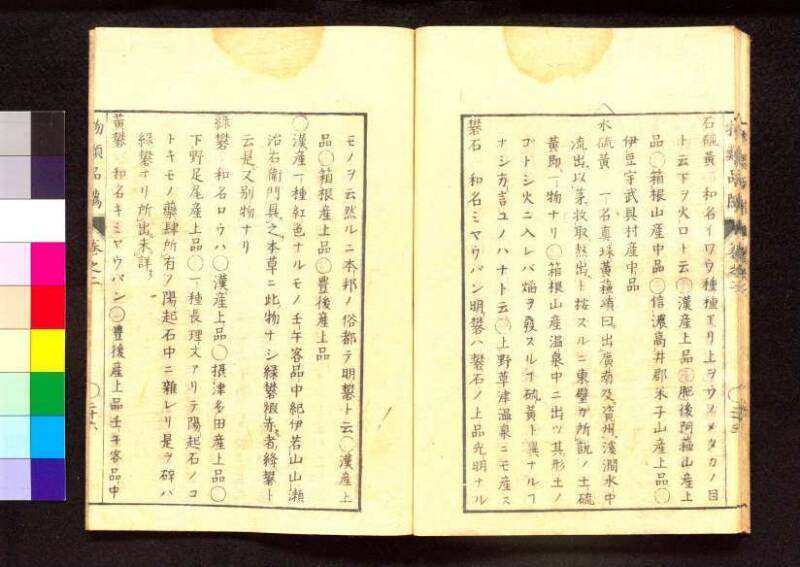 石硫黄 和名イワウ種種アリ上ヲウノメタカノ目
ト云下ヲ火口ト云〇漢産上品〇肥後阿蘇山産上
品〇箱根山産中品〇信濃高井郡米子山産上品〇
伊豆宇武具村産中品
水硫黄 一名真珠黄蘇頌曰出廣南及資州溪澗水中
流出以茅收取熬出ト按スルニ東壁カ所説ノ土硫
黄即一物ナリ〇箱根山産温泉中ニ出ツ其形土ノ
ゴトシ火ニ入レバ焔ヲ發スル𪜈硫黄ト異ナルヿ
ナシ方言ユノハナト云〇上野草津温泉ニモ産ス
礬石 和名ミヤウバン明礬ハ礬石ノ上品光明ナル
モノヲ云然ルニ本邦ノ俗都テ明礬ト云〇漢産上
品〇箱根産上品〇豊後産上品
〇漢産一種紅色ナルモノ壬午客品中紀伊若山山瀬
治右衛門具之本草ニ此物ナシ緑礬煆赤者絳礬ト
云是又別物ナリ
緑礬 和名ロウハ〇漢産上品〇摂津多田産上品〇
下野足尾産上品〇一種長理文アリテ陽起石ノコ
トキモノ藥肆所有ノ陽起石中ニ雜レリ是ヲ碎バ
緑礬ナリ所出未詳
黄礬 和名キミヤウバン〇豊後産上品壬午客品中
物類品隲 巻之二